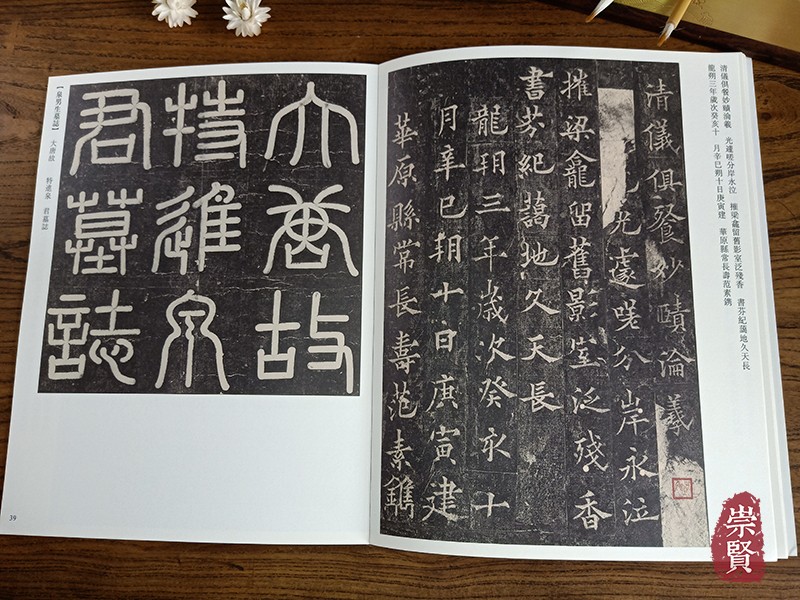 清儀俱餐妙賾淪羲
光遽嗟分岸永泣
摧梁龕留舊影室泛殘香
書芬紀蔼地久天長
龍朔三年歲次癸亥十
月辛巳朔十日庚寅建
華原縣常長壽范素鐫
清儀俱餐妙賾淪羲 光遽嗟分岸永泣 摧梁龕留舊影室泛殘香 書芬紀蔼地久天長
龍朔三年歲次癸亥十 月辛巳朔十日庚寅建 華原縣常長壽范素鐫
大唐故
特進泉
君墓誌
【泉男生墓誌】 大唐故 特進泉 君墓誌
39
崇賢